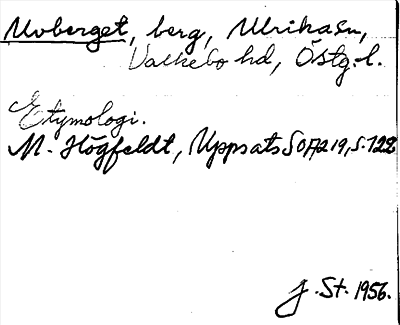 Uvberget, berg, Ulrika sn,
Valkebo hd, Östg.l.
Etymologi.
M. Högfeldt, Uppsats SOFA 219, s. 122
J. St. 1956.